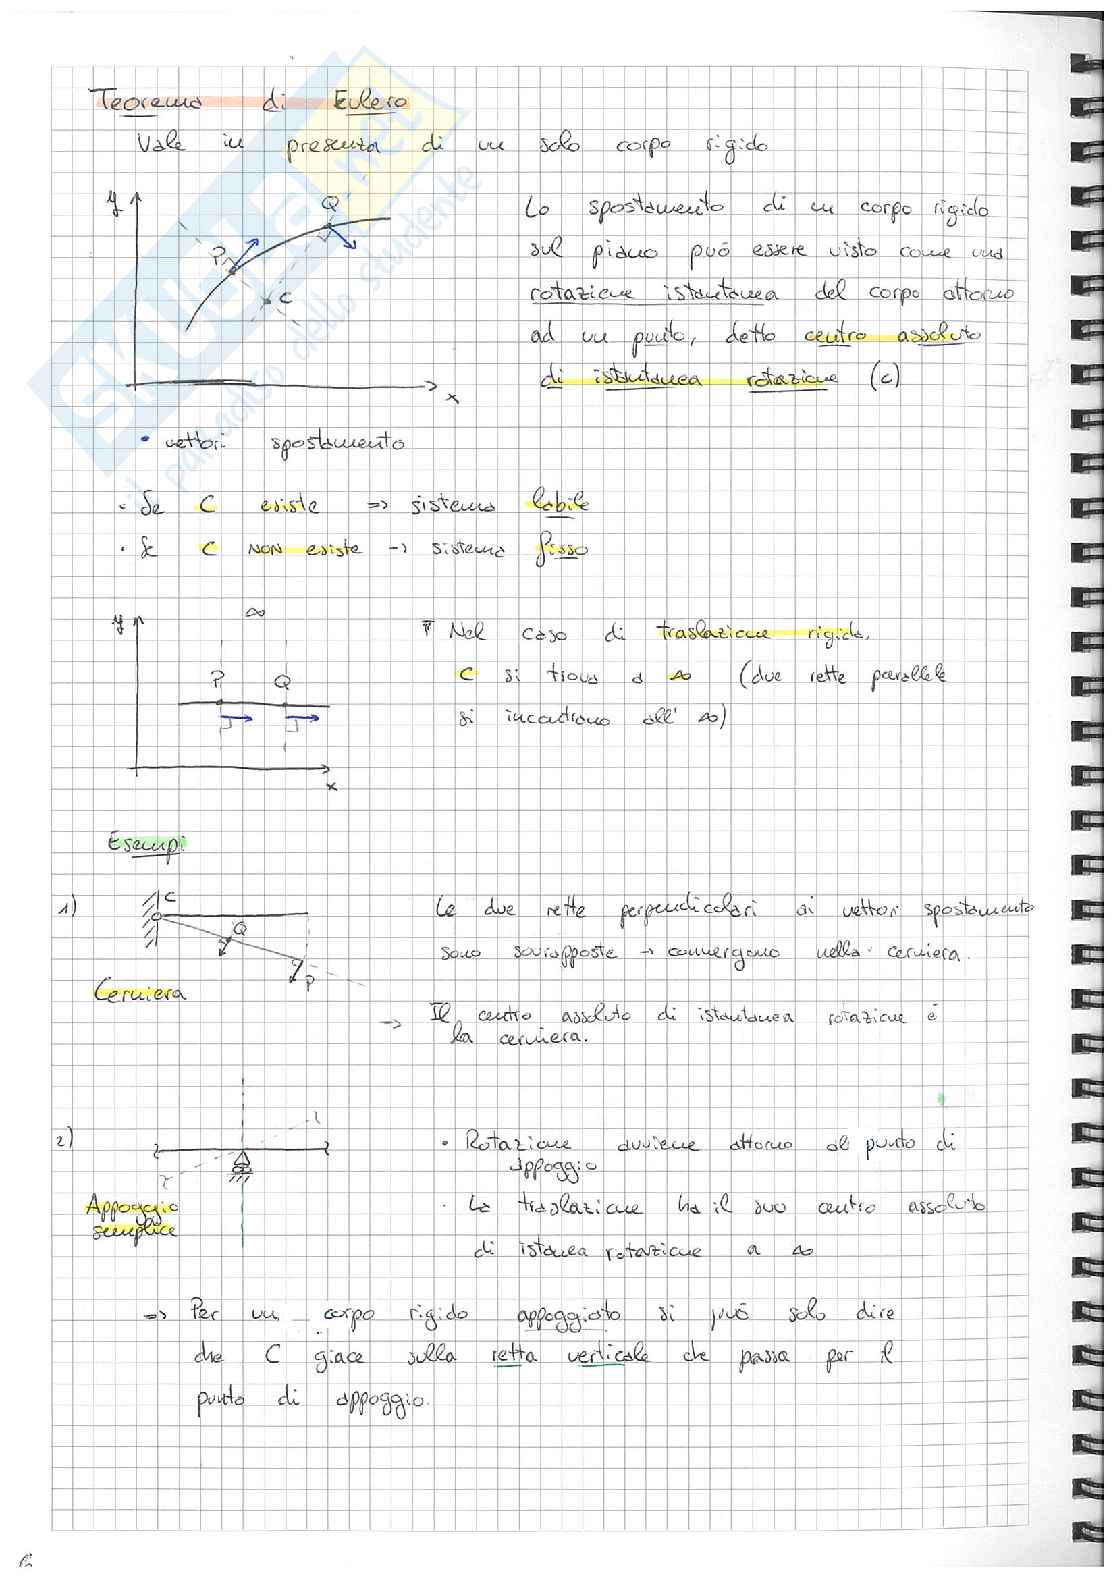 Teorema di Eulero
Vale in presenza di un solo corpo rigido
y
Q
P
C
x
Lo spostamento di un corpo rigido
sul piano può essere visto come una
rotazione istantanea del corpo attorno
ad un punto, detto centro assoluto
di istantanea rotazione (C)
• vettori spostamento
• Se C esiste => sistema labile
• Se C NON esiste -> sistema fisso
y
∞
P Q
x
Nel caso di traslazione rigida,
C si trova a ∞ (due rette parallele
si incontrano all'∞)
Esempi
1)
C
Q
P
Cerniera
Le due rette perpendicolari ai vettori spostamento
sono sovrapposte -> convergono nella cerniera.
-> Il centro assoluto di istantanea rotazione è
la cerniera.
2)
Appoggio
semplice
• Rotazione avviene attorno al punto di
appoggio
• La traslazione ha il suo centro assoluto
di istanea rotazione a ∞
=> Per un corpo rigido appoggiato si può solo dire
che C giace sulla retta verticale che passa per il
punto di appoggio.
SKUOLA.net
il paradiso dello studente